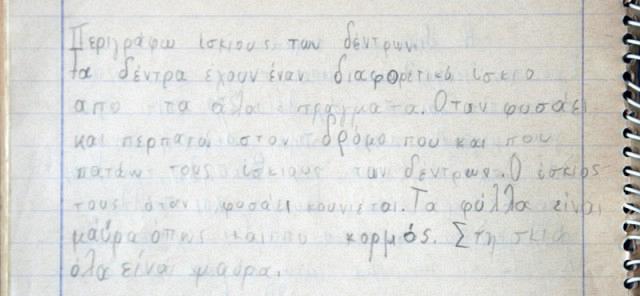 Περιγράφω ίσκιους των δέντρων
Τα δέντρα έχουν έναν διαφορετικό ίσκιο
απο τα άλα πραγματα. Όταν φυσάει
και περπατάω στον δρόμο που και που
πατάω τους ίσκιους των δεντρων. Ο ίσκιος
τους όταν φυσάει κουνιέται. Τα φύλλα είναι
μαύρα όπως και ο κορμός. Στη σκιά
όλα είναι μαύρα.